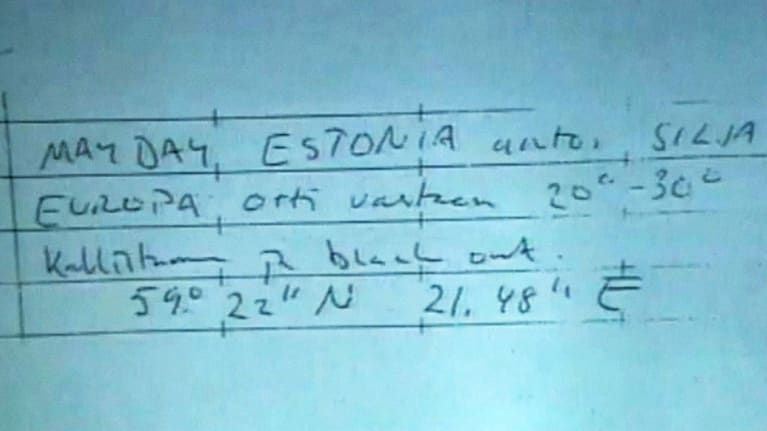 MAYDAY, ESTONIA antoi SILJA
EUROPA otti vastaan 20° -30°
Kallistuma ja black out.
59.° 22" N 21.48" E